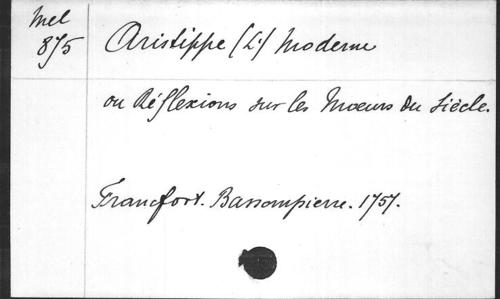 Mel
875
Aristippe (L') Moderne
ou Réflexions sur les Moeurs du Siècle.
Francfort. Bassompierre. 1757.